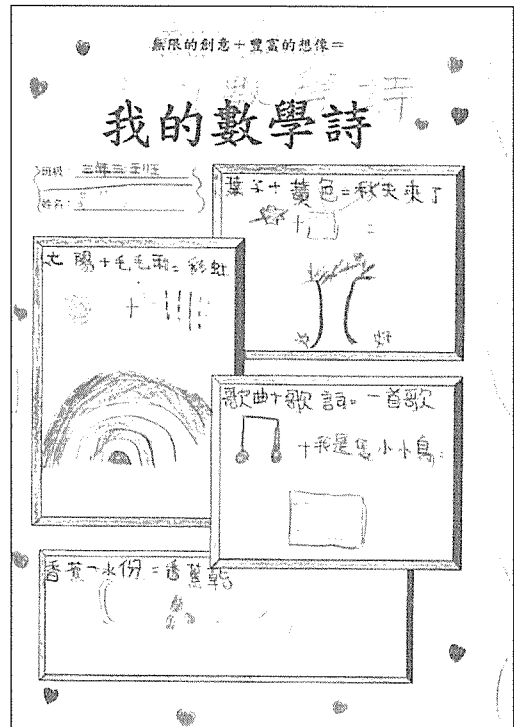 無限的創意+豐富的想像=
我的數學詩
班級:三年三班
姓名:
葉子+黃色=秋天來了
+ =
太陽+毛毛雨=彩虹
+
歌曲+歌詞=一首歌
+我是隻小小鳥=
香蕉-水份=香蕉乾